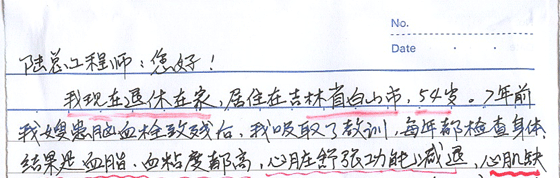 No.
Date
陆总工程师：您好！
我现在退休在家，居住在吉林省白山市，54岁。7年前
我嫂患脑血栓致残后，我吸取了教训，每年都检查身体
结果是血脂、血粘度都高，心脏舒张功能减退，心肌缺